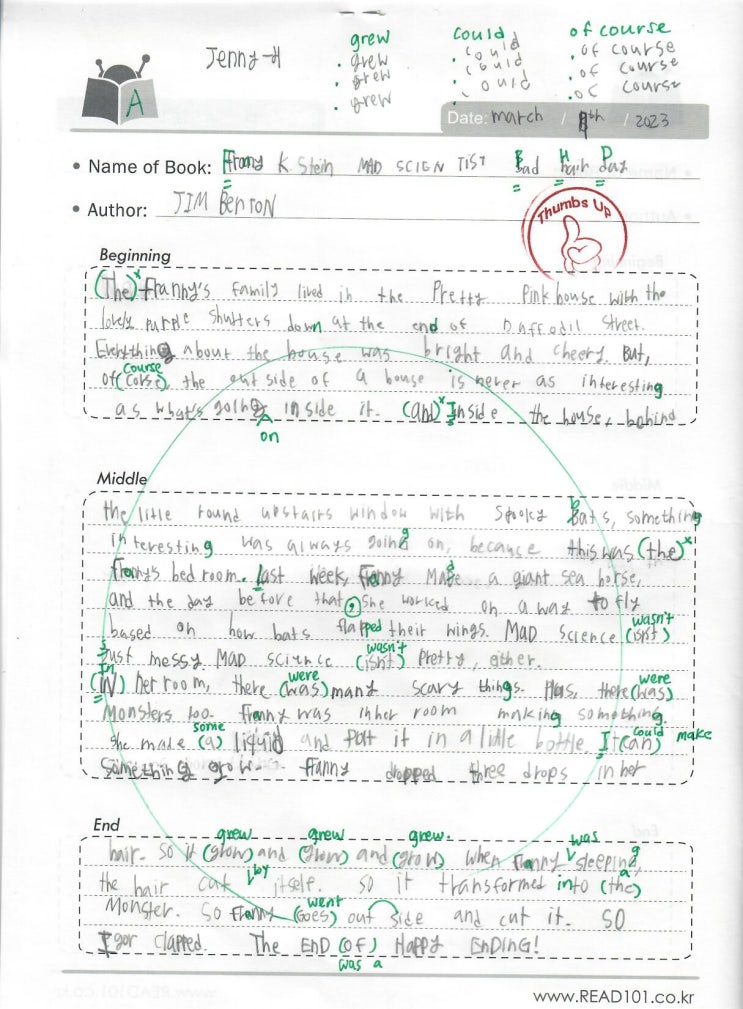 grew could of course
Jenny-H . grew . could . of course
. grew . could . of course
. grew . could . of course
A
Date: march / 8th / 2023
• Name of Book: Franny K. Stein MAD SCIENTIST Bad hair day
F B H D
• Author: JIM BENTON
Thumbs Up
Beginning
(The)x Franny's family lived in the Pretty Pink house with the
lovely purple shutters down at the end of Daffodil street.
Everything about the house was bright and cheery. But,
course
of (corse), the outside of a house is never as interesting
as what's going inside it. (and)x Inside the house, behind
on
Middle
the little round upstairs window with spooky bats, something
interesting was always going on, because this was (the)x
Franny's bedroom. Last week, Franny made a giant sea horse,
and the day before that, she worked on a way to fly
wasn't
based on how bats flapped their wings. MAD science (isn't)
wasn't
Just messy. MAD science (isn't) Pretty, either.
In were were
(IN) her room, there (was) many scary things. Plus, there (was)
Monsters too. Franny was in her room making something.
some could make
she made (a) liquid and put it in a little bottle. It (can)
something grow. Franny dropped three drops in her
End
grew grew grew. was
hair. So it (grow) and (grow) and (grow) when Franny sleeping,
by a
the hair cut itself. so it transformed into (the)
went
Monster. So Franny (goes) out side and cut it. SO
Igor clapped. The END (of) Happy ENDING!
was a
www.READ101.co.kr